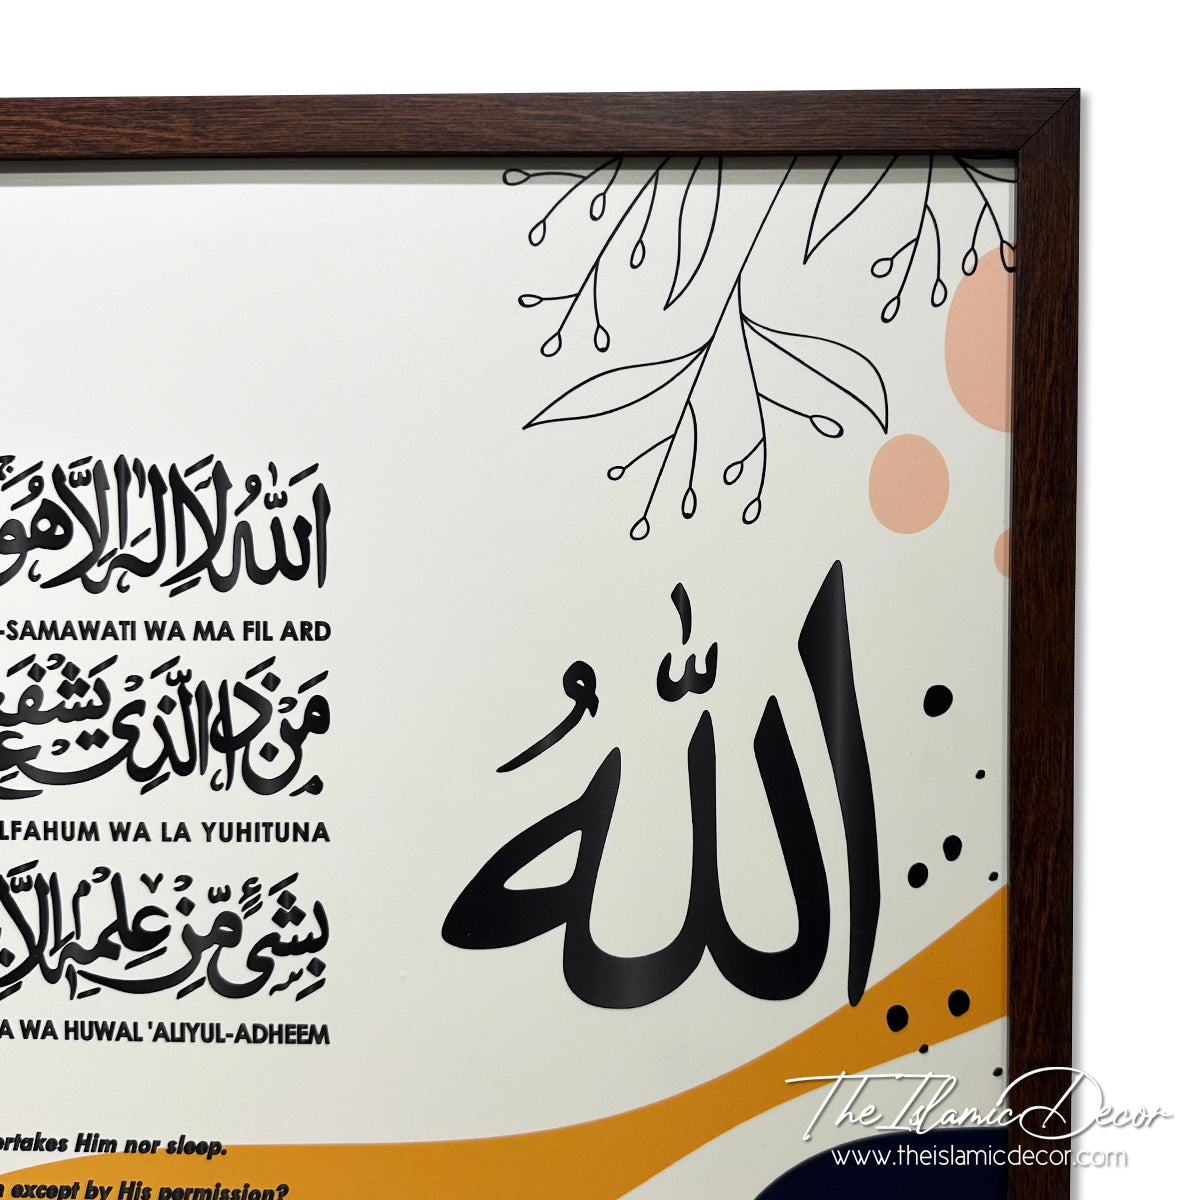 اَللّٰهُ لَا إِلٰهَ إِلَّا هُوَ
-SAMAWATI WA MA FIL ARD
مَنْ ذَا الَّذِي يَشْفَعُ
LFAHUM WA LA YUHITUNA
بِشَيْءٍ مِّنْ عِلْمِهِ إِلَّا
A WA HUWAL 'ALIYUL-ADHEEM
ertakes Him nor sleep.
n except by His permission?
الله
The Islamic Decor
www.theislamicdecor.com